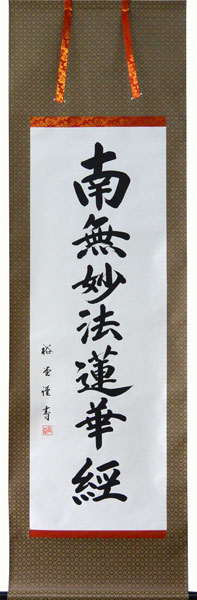 南無妙法蓮華經
裕雲謹書